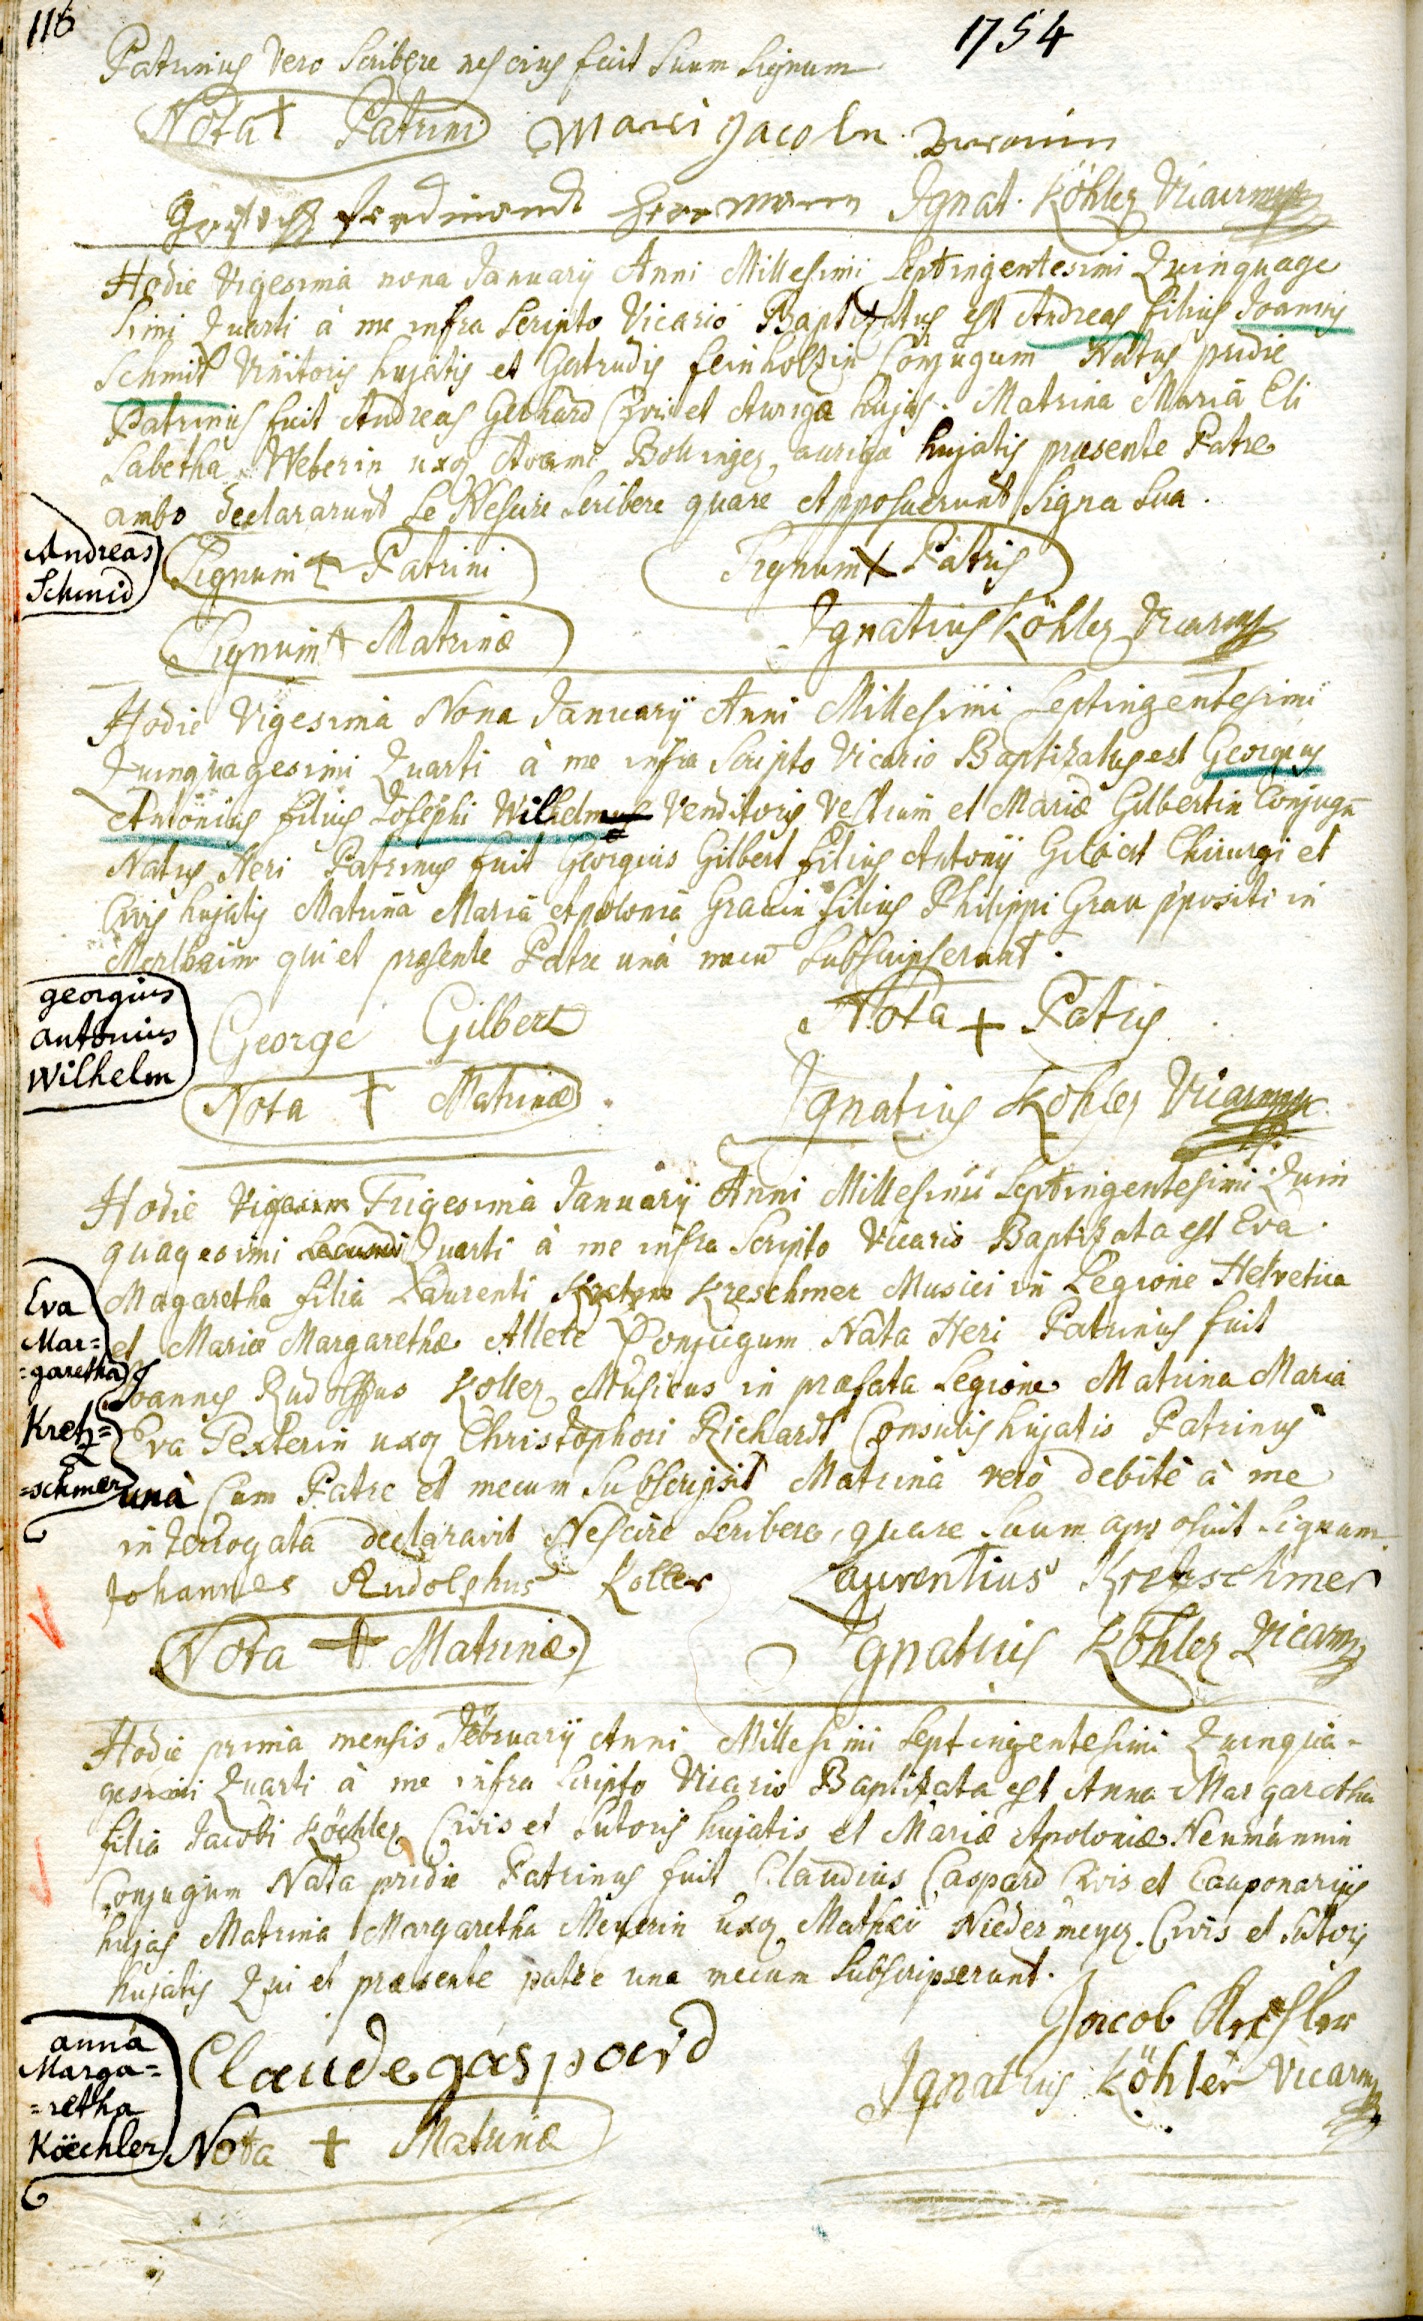 116
1754
Patrinus Vero Scribere nescius fecit Suum Signum
Nota + Patrini Mari Jacobe
Ferdinandt Herrmann Ignat. Köhler Vicarius
Hodie Vigesima nona Januarij Anni Millesimi Septingentesimi Quinquage
simi Quarti à me infra Scripto Vicario Baptizatus est Andreas filius Joannis
Schmit Vinitoris hujatis et Gertrudis feinholzin Conjugum Natus pridie
Patrinus fuit Andreas Gebhard Civis et Auriga hujas. Matrina Maria Eli
sabetha Weberin uxor Adami Bollinger auriga hujatis præsente Patre
ambo declararunt Se Nescire Scribere quare Apposuerunt Signa Sua.
Andreas
Schmid
Signum + Patrini Signum X Patris
Signum + Matrinæ Ignatius Köhler Vicarius
Hodie Vigesima Nona Januarij Anni Millesimi Septingentesimi
Quinquagesimi Quarti à me infra Scripto Vicario Baptizatus est Georgius
Antonius filius Josephi Wilhelmus Venditoris Vestium et Mariæ Gilbertin Conjugū
Natus Heri Patrinus fuit Georgius Gilbert filius Antonij Gilbert Chirurgi et
Civis hujatis Matrina Maria Apolonia Grauin filius Philippi Grau ppositi in
Merlheim qui et præsente Patre unà mecū Subscripserunt.
georgius
antonius
Wilhelm
George Gilbert Nota + Patris
Nota + Matrinæ Ignatius Köhler Vicarius
Hodie Vigesim Trigesima Januarij Anni Millesimi Septingentesimi Quin
quagesimi Secundi Quarti à me infra Scripto Vicario Baptizata est Eva
Magaretha filia Laurenti Kreschmer Musici in Legione Helvetica
et Mariæ Margarethæ Allete Conjugum Nata Heri Patrinus fuit
Joannes Rudolffus Koller Musicus in præfata Legione Matrina Maria
Eva Texterin uxor Christophori Richardt Consulis hujatis Patrinus
unà Cum Patre et mecum Subscripsit Matrina verò debitè à me
interrogata declaravit Nescire Scribere, quare Suum apposuit Signum
Eva
Mar=
=garetha
Kretz=
=schmer
Johannes Rudolphus Koller Laurentius Kretzschmer
Nota + Matrinæ Ignatius Köhler Vicarius
Hodie prima mensis Februarij Anni Millesimi Septingentesimi Quinqua-
gesimi Quarti à me infra Scripto Vicario Baptizata est Anna Margaretha
filia Jacobi Köchler Civis et Sutoris hujatis et Mariæ Apoloniæ Neumännin
Conjugum Nata pridie Patrinus fuit Claudius Caspard Civis et Cauponarijs
hujas Matrina Margaretha Meyerin Uxor Mathæi Niedermeyer Civis et Sutoris
hujatis Qui et præsente patre una mecum Subscripserunt.
anna
Marga=
=retha
Köechler
Claude gaspard Jacob Köchler
Ignatius Köhler Vicarius
Nota + Matrinæ